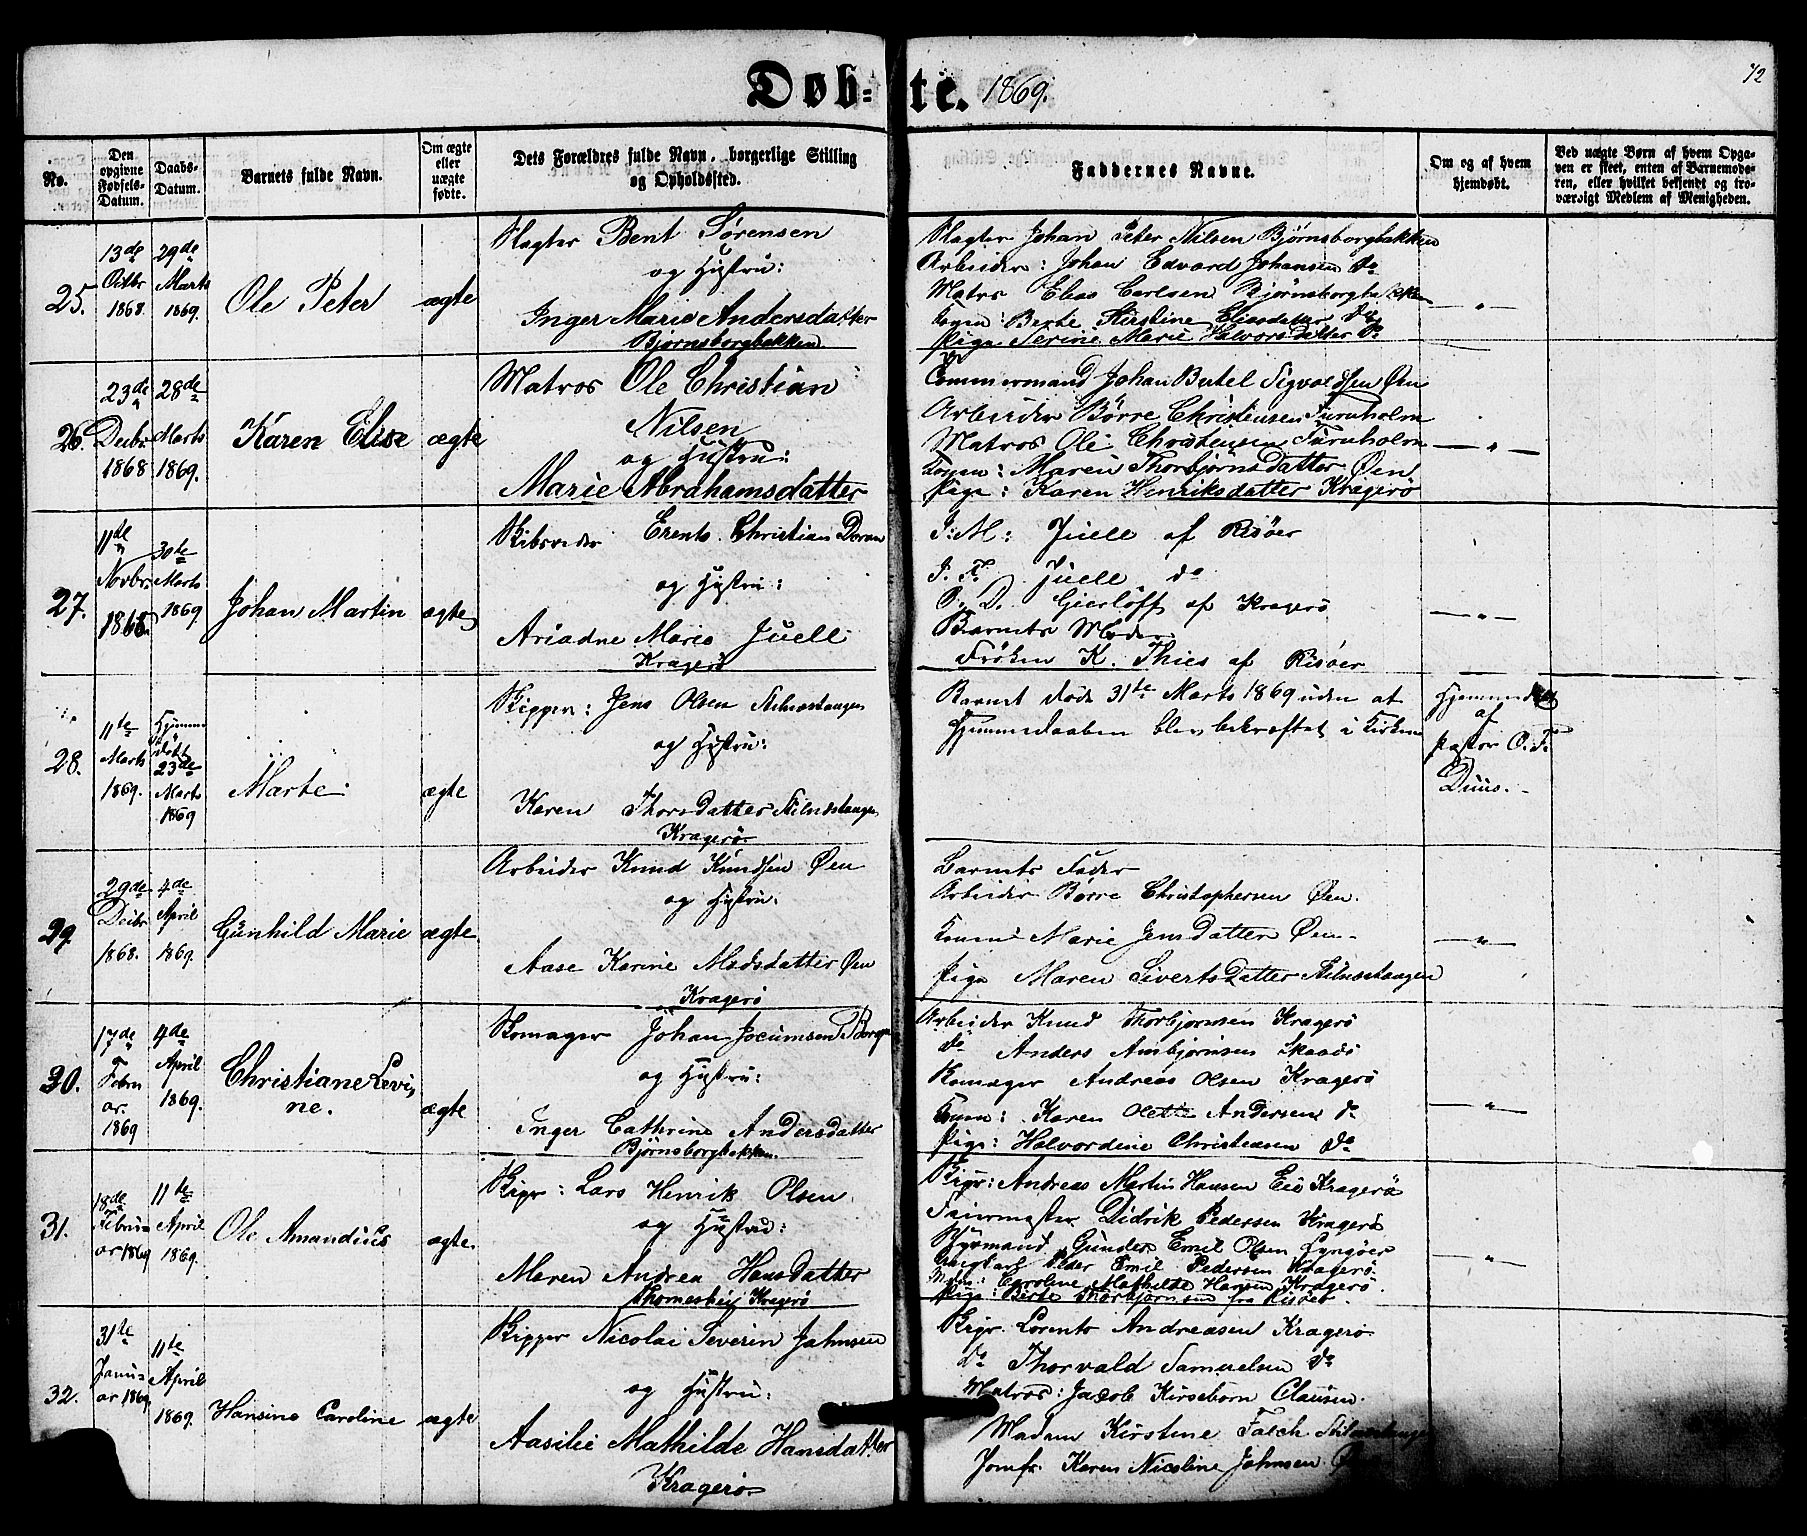 Døb-te. 1869.
72
No.
Den opgivne Fødsels-Datum.
Daabs-Datum.
Barnets fulde Navn.
Om ægte eller uægte fødte.
Dets Forældres fulde Navn, borgerlige Stilling og Opholdssted.
Faddernes Navne.
Om og af hvem hjemdøbt.
Ved uægte Børn af hvem Opga-
ven er skeet, enten af Barnemode-
ren, eller hvilket bekjendt og tro-
værdigt Medlem af Menigheden.
25.
13de Octbr 1868
29de Marts 1869.
Ole Peter
ægte
Slagter Bent Sørensen
og Hustru:
Inger Marie Andersdatter
Bjørnsborgbakken
Slagter Johan Peter Nilsen Bjørnsborgbakken
Arbeider: Johan Edvard Johansen do
Matros Elias Carlsen Bjørnsborgbakken
Konen: Berte Kirstine Eliasdatter do
Pige Serine Marie Halvorsdatter do
— " —
26.
23de Decbr 1868
28de Marts 1869.
Karen Elise
ægte
Matros Ole Christian
Nilsen
og Hustru:
Marie Abrahamsdatter
Tømmermand Johan Butel Sigvoldsen Øen
Arbeider Børre Christensen Furuholm
Matros Ole Christensen Furuholm
Konen: Maren Thorbjørnsdatter Øen
Pige: Karen Henriksdatter Kragerø
— " —
27.
11te Novbr. 1868
30te Marts 1869
Johan Martin
ægte
Skibsreder Erents Christian Dorum
og Hustru:
Ariadne Marie Juell
Kragerø
J: M: Juell af Risøer
J. F. Juell do
O. D. Gierløff af Kragerø
Barnets Moder
Frøken K. Thies af Risøer
— " —
28.
11te Marts 1869.
Hjemmedøbt 23de Marts 1869
Marte
ægte
Skipper: Jens Olsen Stilnestangen
og Hustru:
Karen Thorsdatter Stilnestangen
Kragerø
Barnet døde 31te Marts 1869 uden at
Hjemmedaaben blev bekræftet i Kirken
Hjemmedøbt
af
Pastor O. F.
Duus.
29.
29de Decbr 1868.
4de April 1869.
Gunhild Marie
ægte
Arbeider Knud Knudsen Øen
og Hustru:
Aase Karine Madsdatter Øen
Kragerø
Barnets Fader
Arbeider Børre Christophersen Øen.
Konen Marie Jensdatter Øen
Pige Maren Sivertsdatter Stilnestangen
— " —
30.
17de Februar. 1869
4de April 1869.
Christiane Levi-
ne.
ægte
Skomager Johan Jocumsen Borgen
og Hustru:
Inger Cathrine Andersdatter
Bjørnsborgbakken.
Arbeider Knud Thorbjørnsen Kragerø
do Anders Ambjørnsen Skaadø
Skomager Andreas Olsen Kragerø
Konen: Karen Olette Andersen do
Pige: Halvordine Christensen do
— " —
31.
18de Februar 1869
11te April 1869.
Ole Amandius
ægte.
Skipr: Lars Henrik Olsen
og Hustru:
Maren Andrea Hansdatter
Thomesbey Kragerø
Skipr: Andreas Martin Hansen Eie Kragerø
Feiermester Didrik Pedersen Kragerø
Styrmand Gunder Emil Olsen Lyngøer
Ungkarl Peder Emil Pedersen Kragerø
Konen: Caroline Mathilde Hansen Kragerø.
Pige: Berte Thorbjørnsen fra Risøer.
— " —
32.
31te Januar 1869
11te April 1869.
Hansine Caroline
ægte
Skipper Nicolai Severin Johnsen
og Hustru:
Aasilie Mathilde Hansdatter
Kragerø
Skipr. Lorents Andreasen Kragerø
do Thorvald Samuelsen do
Matros: Jacob Kirsebom Clausen.
Madam Kirstine Falch Stilnestangen
Jomfr. Karen Nicoline Johnsen